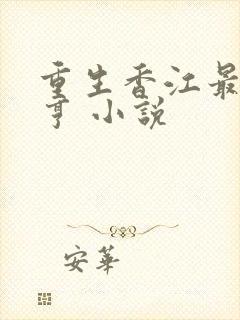 重生香江最
亨 小說
安華